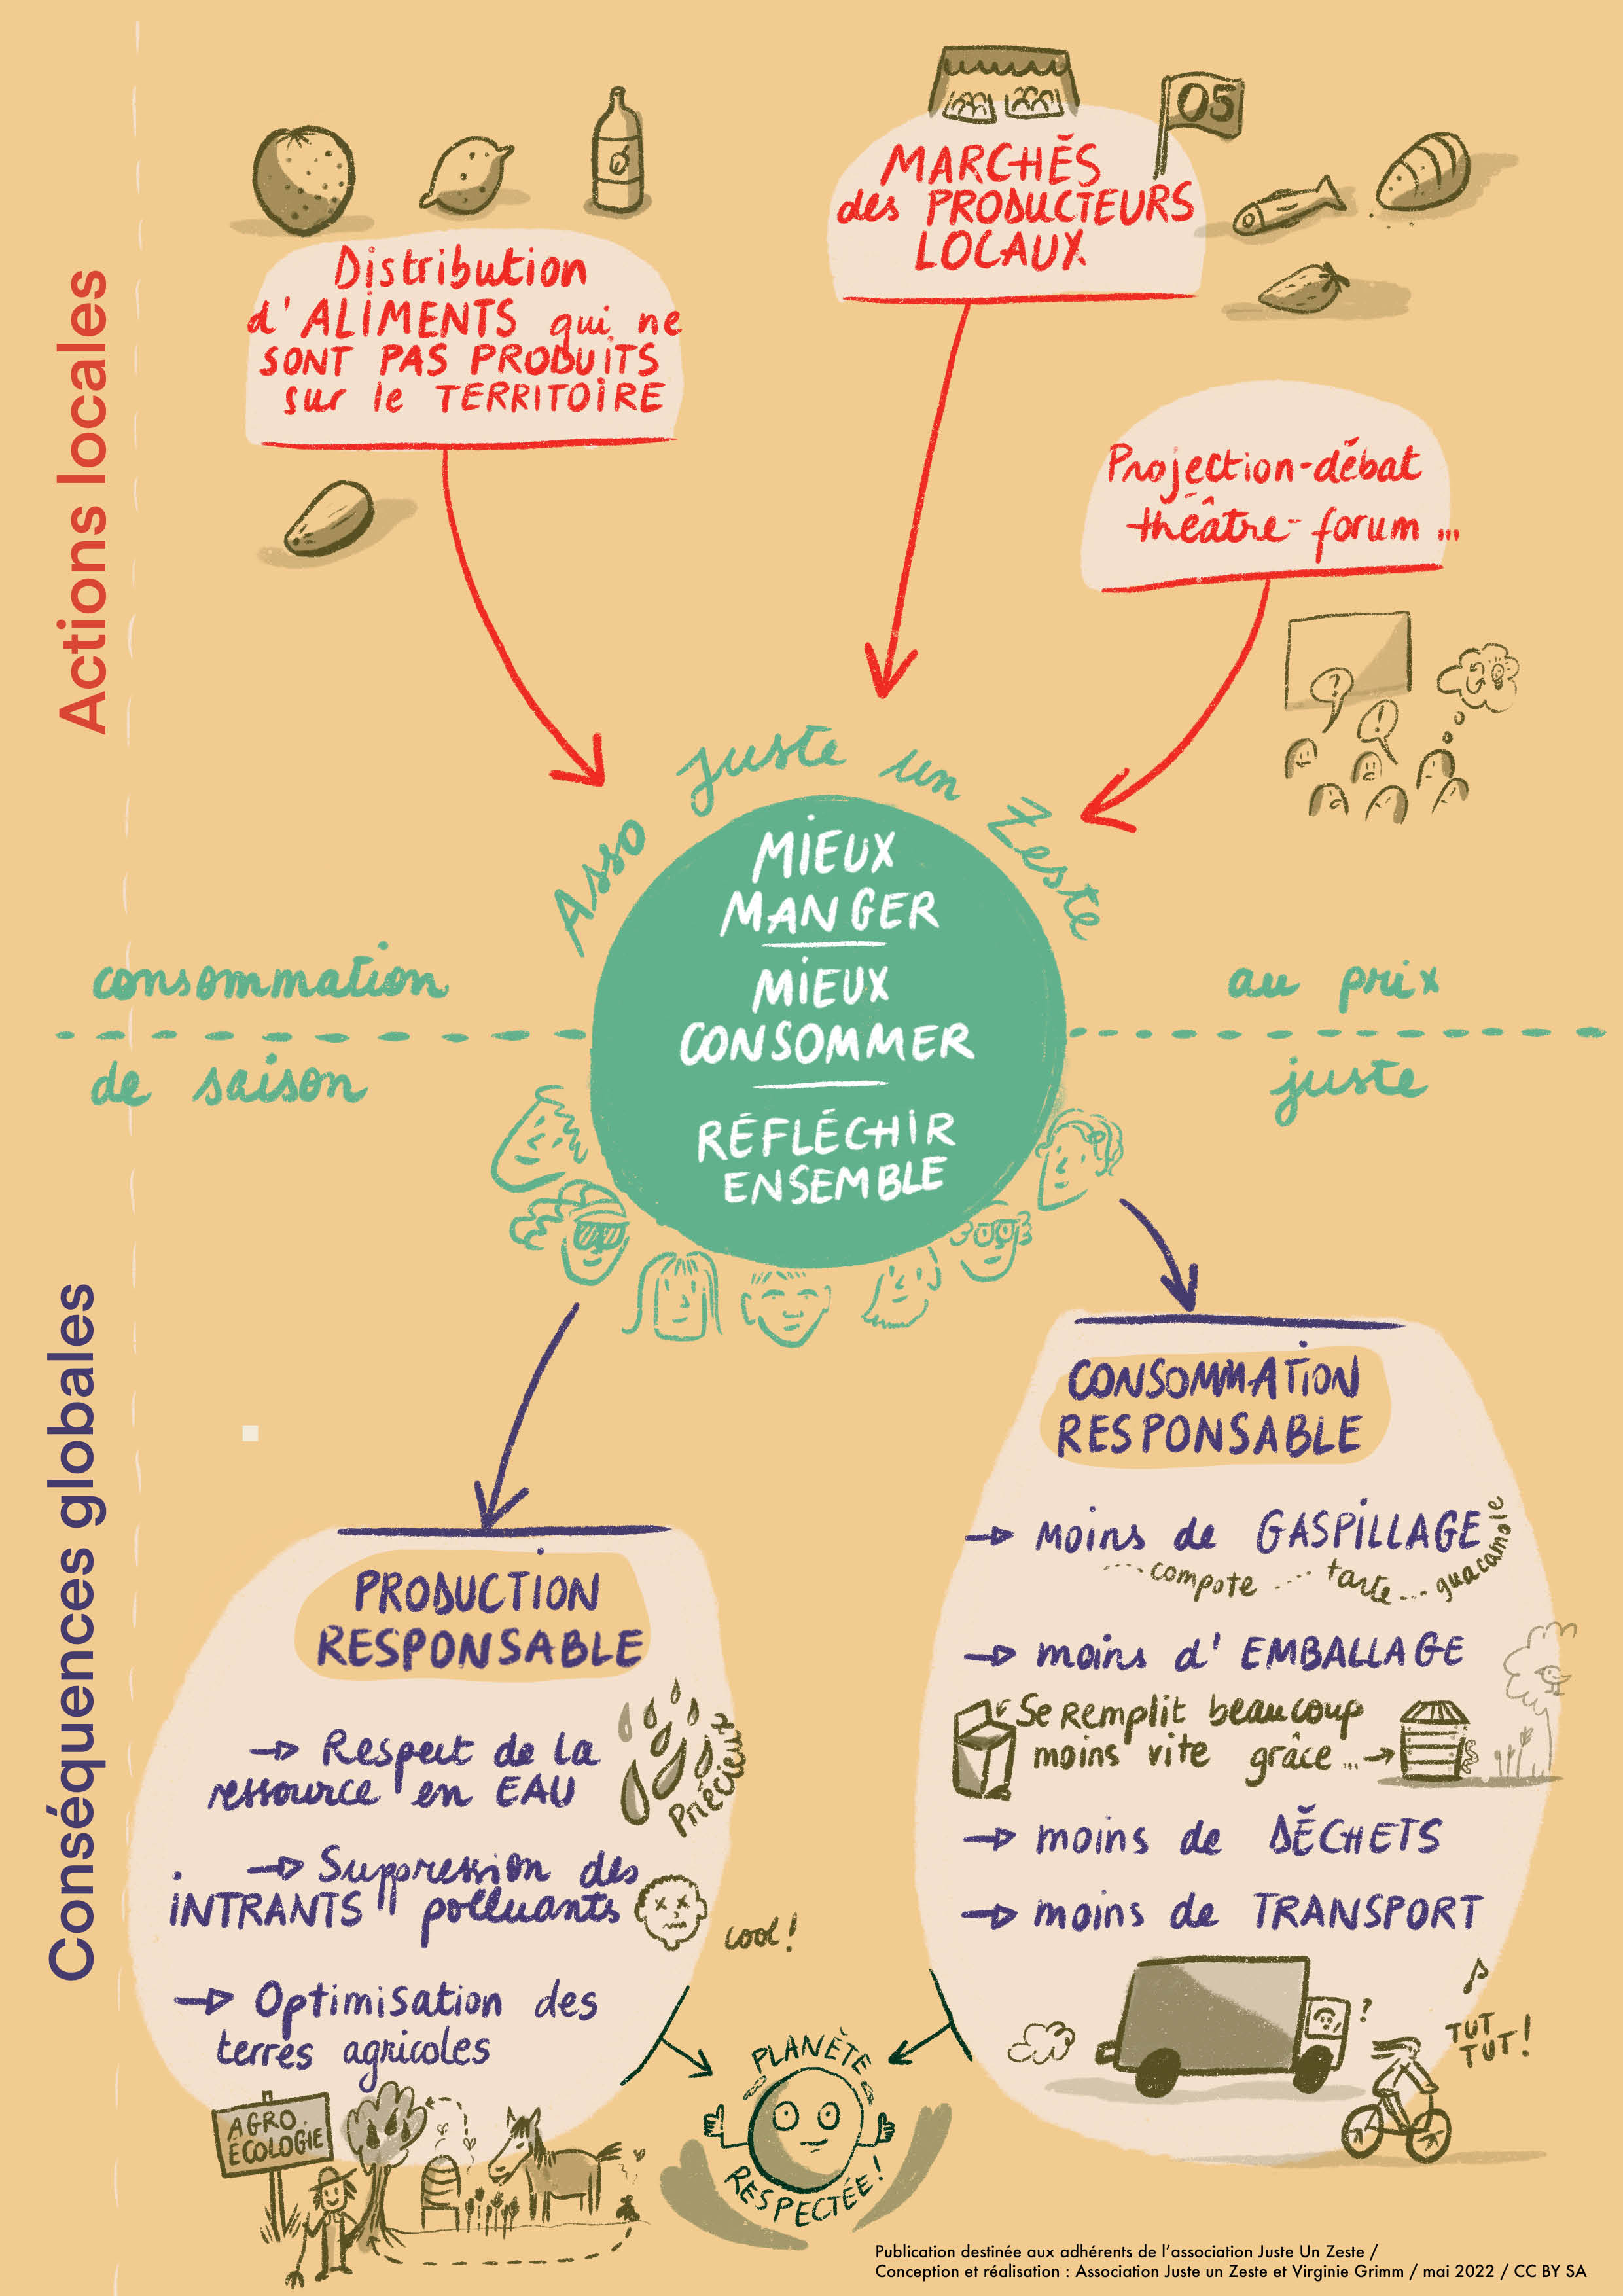 Actions locales
Distribution
d'ALIMENTS qui ne
SONT PAS PRODUITS
sur le TERRITOIRE
05
MARCHÉS
des PRODUCTEURS
LOCAUX
Projection-débat
théâtre-forum ...
?
!
Asso juste un Zeste
MIEUX
MANGER
MIEUX
CONSOMMER
RÉFLÉCHIR
ENSEMBLE
consommation
de saison
au prix
juste
Conséquences globales
PRODUCTION
RESPONSABLE
→ Respect de la
ressource en EAU
Précieux
→ Suppression des
INTRANTS polluants
cool!
→ Optimisation des
terres agricoles
AGRO
ÉCOLOGIE
CONSOMMATION
RESPONSABLE
→ Moins de GASPILLAGE
compote ... tarte... guacamole
→ moins d'EMBALLAGE
Se Remplit beaucoup
moins vite grâce ... →
→ moins de DÉCHETS
→ moins de TRANSPORT
?
TUT
TUT!
PLANÈTE
RESPECTÉE!
Publication destinée aux adhérents de l'association Juste Un Zeste /
Conception et réalisation : Association Juste un Zeste et Virginie Grimm / mai 2022 / CC BY SA